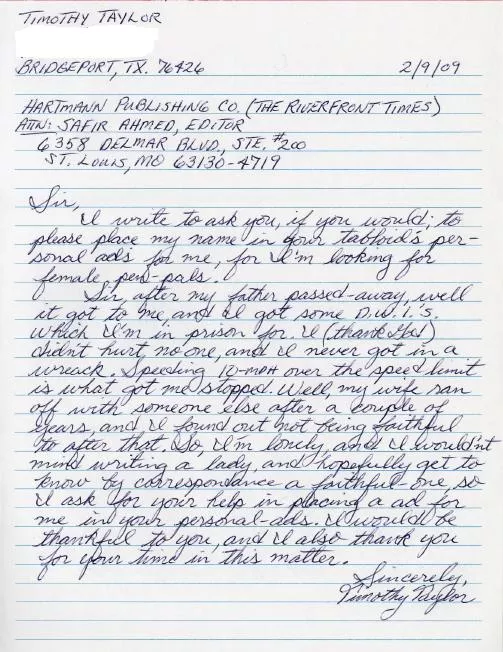 TIMOTHY TAYLOR
BRIDGEPORT, TX. 76426 2/9/09
HARTMANN PUBLISHING CO. (THE RIVERFRONT TIMES)
ATTN: SAFIR AHMED, EDITOR
6358 DELMAR BLVD., STE. #200
ST. LOUIS, MO 63130-4719
Sir,
I write to ask you, if you would; to
please place my name in your tabloid's per-
sonal ads for me, for I'm looking for
female pen-pals.
Sir, after my father passed-away, well
it got to me, and I got some D.W.I.'s.
Which I'm in prison for. I (thank God)
didn't hurt no one, and I never got in a
wreack. Speeding 10-MPH over the speed limit
is what got me stopped. Well, my wife ran
off with someone else after a couple of
years, and I found out not being faithful
to after that. So, I'm lonely, and I wouldn't
mind writing a lady, and hopefully get to
know by correspondance a faithful-one, so
I ask for your help in placing a ad for
me in your personal-ads. I would be
thankful to you, and I also thank you
for your time in this matter.
Sincerely,
Timothy Taylor